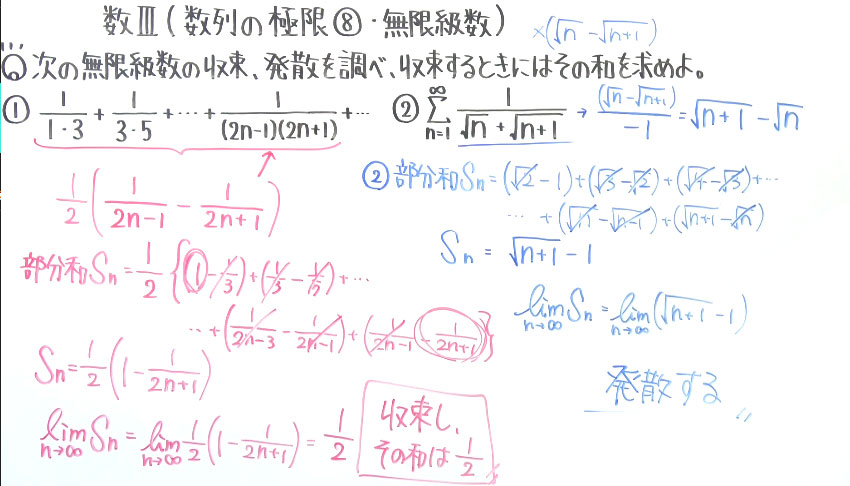 数Ⅲ(数列の極限⑧・無限級数)
×(√n - √n+1)
Q 次の無限級数の収束、発散を調べ、収束するときにはその和を求めよ。
① 1/(1・3) + 1/(3・5) + … + 1/((2n-1)(2n+1)) + …
② ∞Σn=1 1/(√n + √n+1) → (√n - √n+1)/-1 = √n+1 - √n
1/2 (1/(2n-1) - 1/(2n+1))
部分和Sn = 1/2 {(1 - 1/3) + (1/3 - 1/5) + …
… + (1/(2n-3) - 1/(2n-1)) + (1/(2n-1) - 1/(2n+1))}
Sn = 1/2 (1 - 1/(2n+1))
lim n→∞ Sn = lim n→∞ 1/2 (1 - 1/(2n+1)) = 1/2
収束し、
その和は 1/2
② 部分和Sn = (√2 - 1) + (√3 - √2) + (√4 - √3) + …
… + (√n - √n-1) + (√n+1 - √n)
Sn = √n+1 - 1
lim n→∞ Sn = lim n→∞ (√n+1 - 1)
発散する